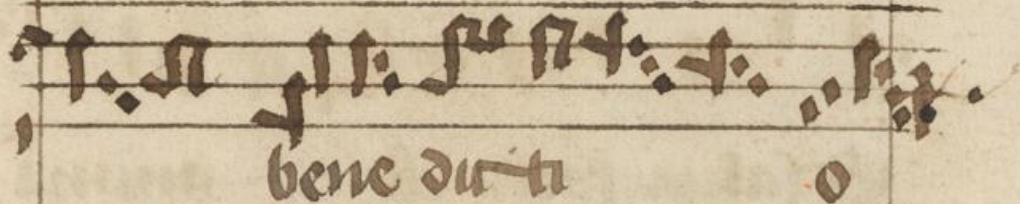 bene dicti o